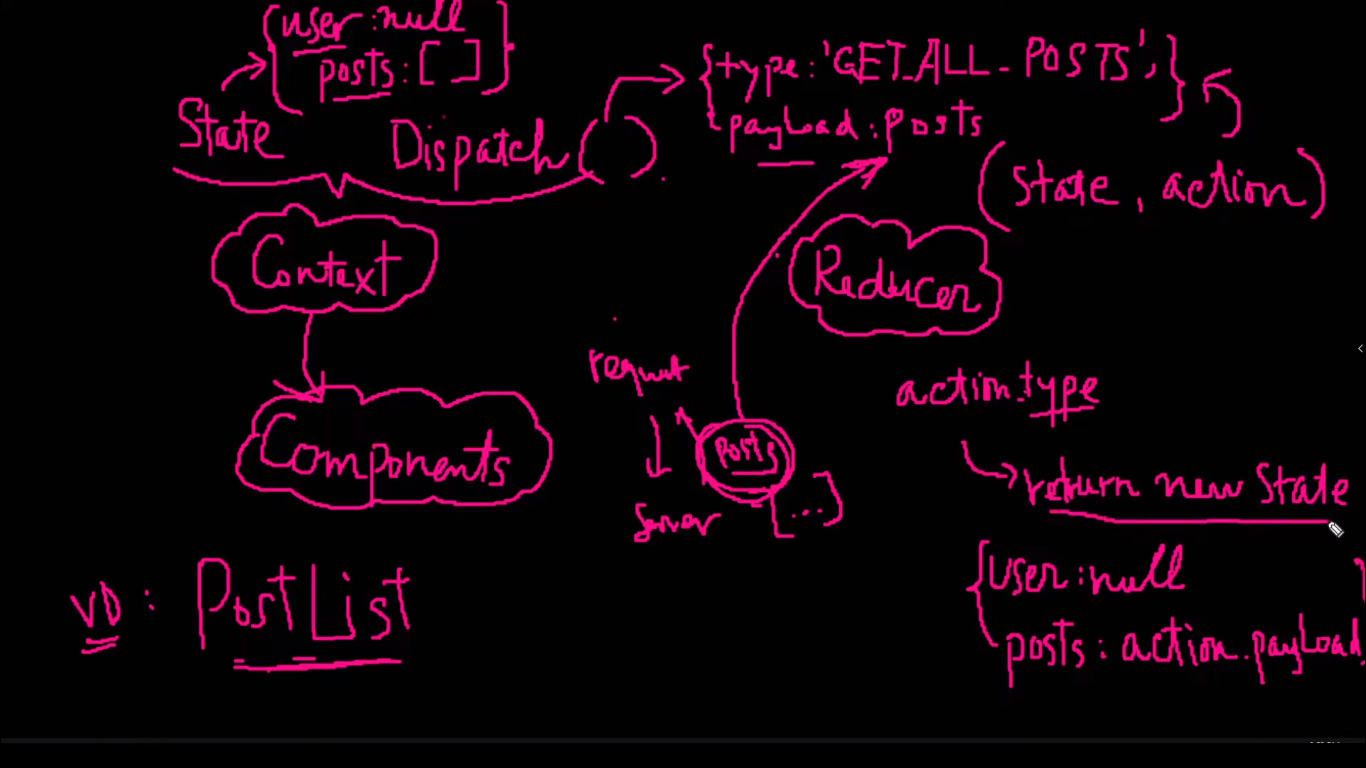 {user:null
posts:[ ]}
State
Dispatch ( )
{type:'GET_ALL_POSTS',
payload:posts}
(State, action)
Context
Reducer
Components
request
server
posts
[...]
action.type
return new State
{user:null
posts:action.payload}
VD: PostList